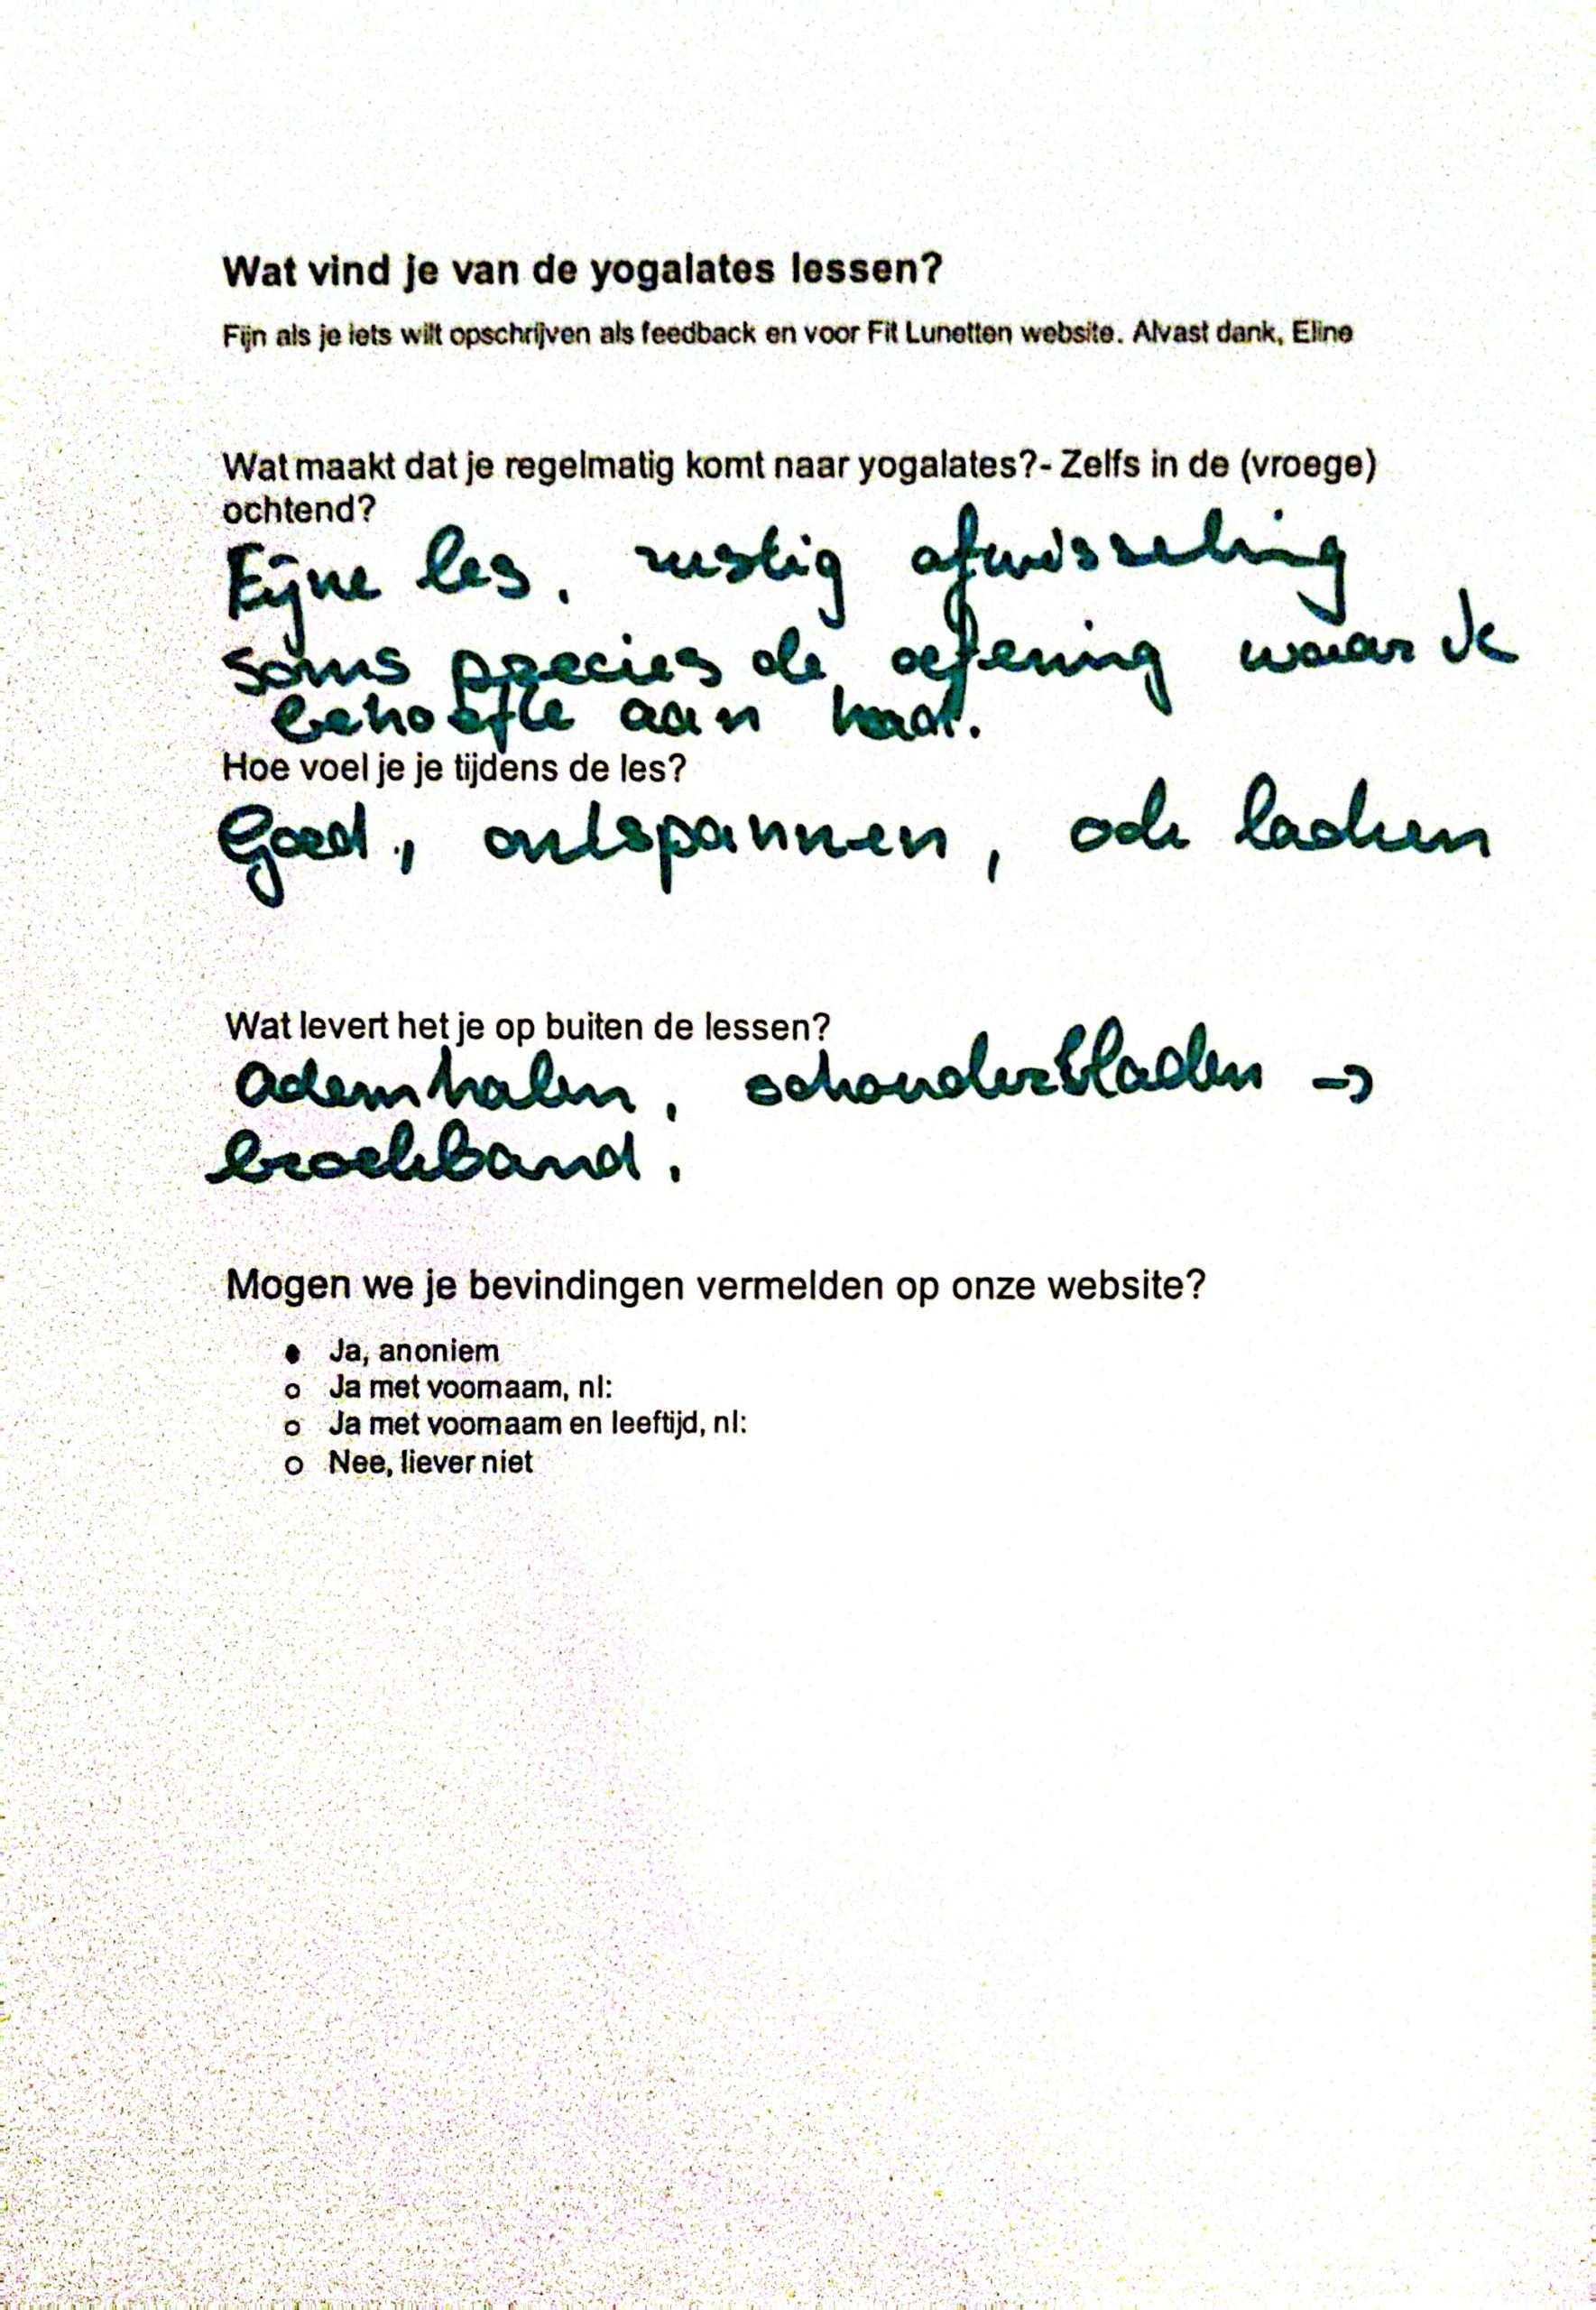 Wat vind je van de yogalates lessen?
Fijn als je iets wilt opschrijven als feedback en voor Fit Lunetten website. Alvast dank, Eline
Wat maakt dat je regelmatig komt naar yogalates?- Zelfs in de (vroege)
ochtend?
Fijne les, rustig afwisseling
soms precies de oefening waar ik
behoefte aan had.
Hoe voel je je tijdens de les?
Goed, ontspannen, ook lachen
Wat levert het je op buiten de lessen?
Ademhalen, schouderbladen ->
broekband.
Mogen we je bevindingen vermelden op onze website?
● Ja, anoniem
o Ja met voornaam, nl:
o Ja met voornaam en leeftijd, nl:
o Nee, liever niet